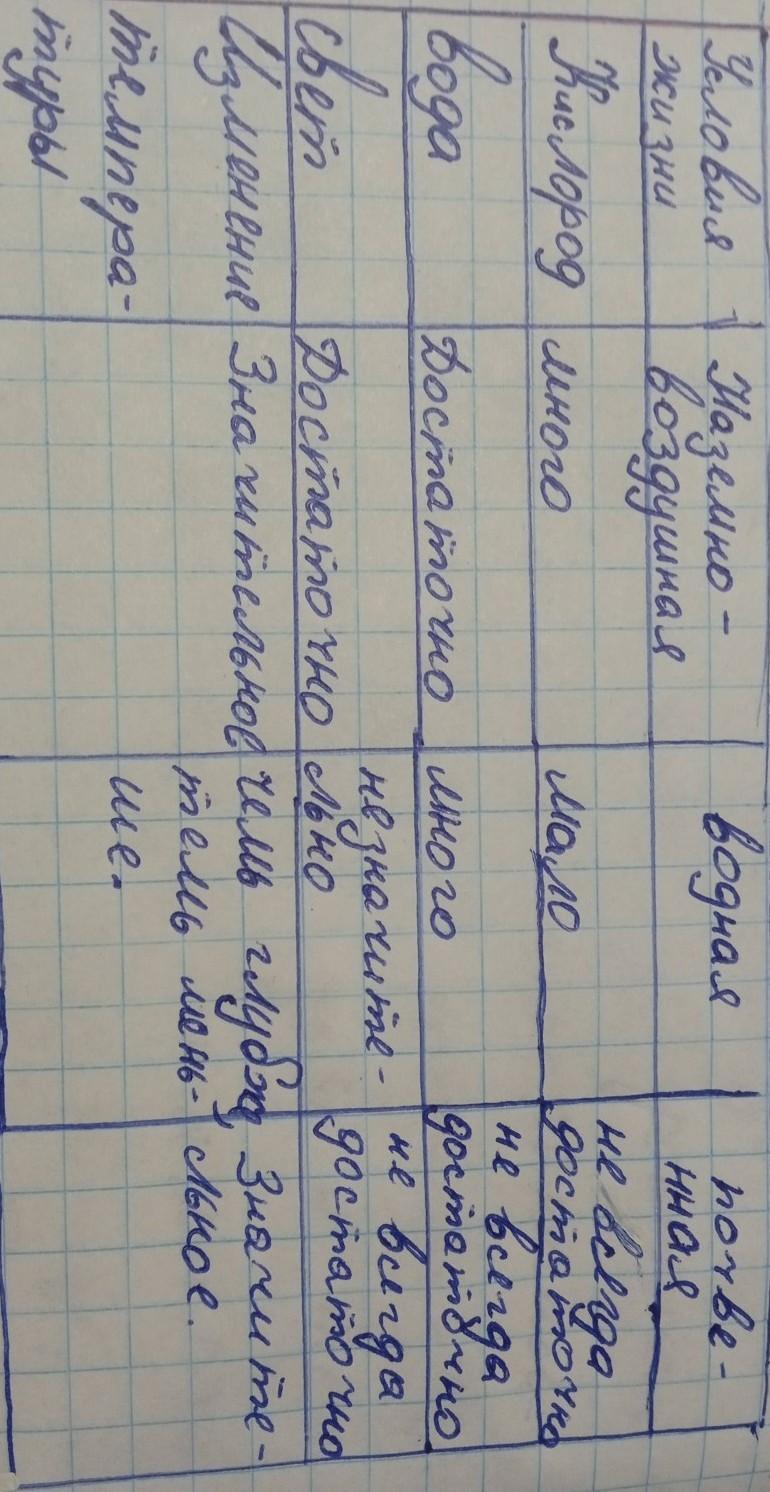 Условия жизни
Наземно-воздушная
водная
почве-
нная
Кислород
много
мало
не всегда
достаточно
вода
Достаточно
много
не всегда
достаточно
свет
Достаточно
незначите-
льно
не всегда
достаточно
Изменение
темпера-
туры
Значительное
чемь глубже,
темь мень-
ше.
Значите-
льное.